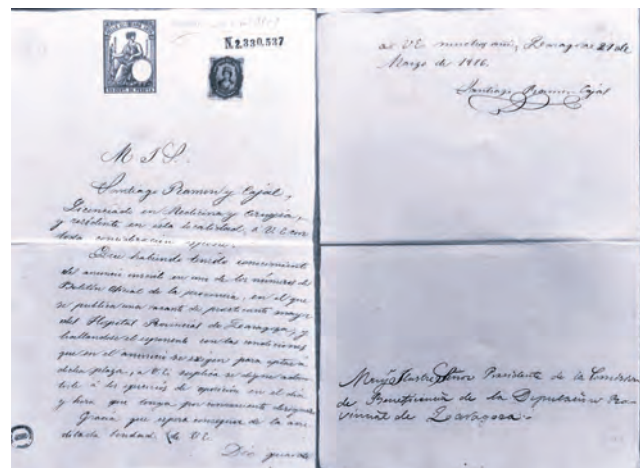 N.2,330,537
M. I. S.
Santiago Ramon y Cajal,
Licenciado en Medicina y Cirugía,
y residente en esta localidad, a V. E. con
toda consideracion expone:
Que habiendo tenido conocimiento
del anuncio inserto en uno de los números del
Boletin oficial de la provincia, en el que
se publica una vacante de practicante mayor
del Hospital Provincial de Zaragoza, y
hallandose el exponente con las condiciones
que en el anuncio se exigen para optar a
dicha plaza, a V. E. suplica se digne admi
tirle á los ejercicios de oposicion en el dia
y hora que tenga por conveniente designar
Gracia que espera conseguir de la
bondad de V. E.
Dios guarde
a V. E. muchos años, Zaragoza 21 de
Marzo de
Santiago Ramon Cajal
Muy Ilustre Señor Presidente de la Comision
de Beneficencia de la Diputacion Pro-
vincial de Zaragoza.